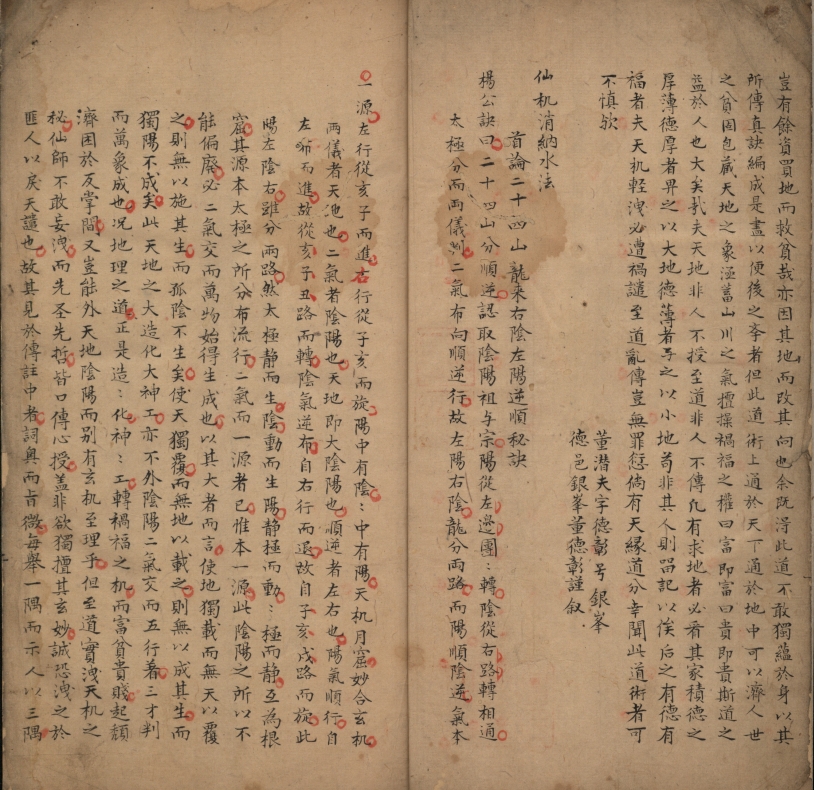 豈有餘資買地而救貧哉亦因其地而改其向也余既淂此道不敢獨蘊於身以其
所傳真訣編成是畫以便後之孝者但此道術上通於天下適於地中可以濟人世
之貧困包藏天地之象溼蓄山川之氣擅操禍福之權曰富即富曰貴即貴斯道之
益於人也大矣我夫天地非人不授至道非人不傳凢有求地者必看其家積德之
厚薄德厚者畀之以大地德薄者与之以小地苟非其人則畱記以俟后之有德有
福者夫天机輕洩必遭禍譴至道亂傳豈無罪愆倘有天縁道分幸聞此道術者可
不慎欤
董潜夫字德彰号銀峯
德邑銀峯董德彰謹叙
仙机消納水法
首論二十四山龍来右陰左陽逆順秘訣
楊公訣曰二十四山分順逆認取陰陽祖与宗陽從左邊團〻轉陰從右路轉相通
太極分而兩儀判二氣布向順逆行故左陽右陰龍分兩路而陽順陰逆氣本
一源左行從亥子而進右行從子亥而旋陽中有陰〻中有陽天机月窟妙合玄机
兩儀者天地也二氣者陰陽也天地即大陰陽也順逆者左右也陽氣順行自
左而進故從亥子丑路而轉陰氣逆布自右行而退故自子亥戌路而旋此
陽左陰右雖分兩路然太極静而生陰動而生陽静極而動〻極而静互為根
窟其源本太極之所分布流行二氣而一源者已惟本一源此陰陽之所以不
能偏廢必二氣交而萬物始得生成也以其大者而言使地獨載而無天以覆
之則無以施其生而孤陰不生矣使天獨覆而無地以載之則無以成其生而
獨陽不成矣此天地之大造化大神工亦不外陰陽二氣交而五行着三才判
而萬象成也况地理之道正是造〻化神〻工轉禍福之机而富貧貴賤起頹
濟困於反掌間又豈能外天地陰陽而别有玄机至理乎但至道實洩天机之
秘仙師不敢妄洩而先圣先哲皆口傳心授盖非欲獨擅其玄妙誠恐洩之於
匪人以戾天譴也故其見於傳註中者詞奥而㫖微每舉一隅而示人以三隅